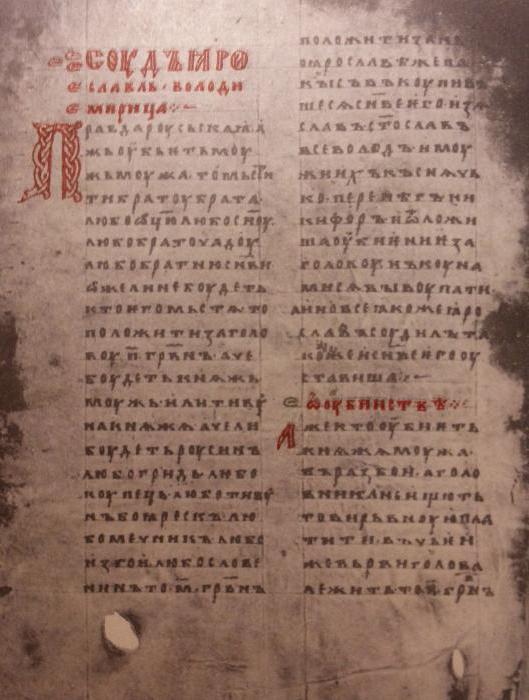 СОУДЪ ꙖРО
СЛАВЛЬ · ВОЛОДИ
МИРИЦА
Правда роусьскаꙗ · а
жь оубьѥть моу
жь моужа · то мьсти
ти братоу брата
любо оц҃ю любо сн҃оу
любо братоу чадоу
любо братню сн҃ви
ѡже ли не боудеть
кто ѥго мьстѧ то
положити за голо
воу · п҃ · грв҃нъ · аче
боудеть кнѧжь
моужь · или тивоу
на кнѧжа аче ли
боудеть роусинъ
любо гридь · любо
коупець · любо тивоу
нъ боꙗрескъ · лю
бо мечникъ либо
изгои · любо слове
нинъ то · м҃ · грв҃нъ
положити за нь
ꙗрославѣ же па
кы съвъкоупивъ
шесѧ сн҃ве ѥго изѧ
славъ ст҃ославъ
всеволодъ и моу
жи ихъ къснѧчь
ко · перенѣгъ ни
кифоръ и ѿложи
ша оубиѥниѥ за
головоу нъ коуна
ми сѧ выкоупати
а ино все ꙗкоже ꙗро
славъ соудилъ та
коже и сн҃ве ѥго оу
ставиша
ѡ оубииствѣ
Аже кто оубьѥть
кнѧжа моужа ·
въ разбои · а голо
вника не ищють
то вирьвноую пла
тити · въ чьѥи
же вьрви голова
лежить то п҃ · грв҃нъ